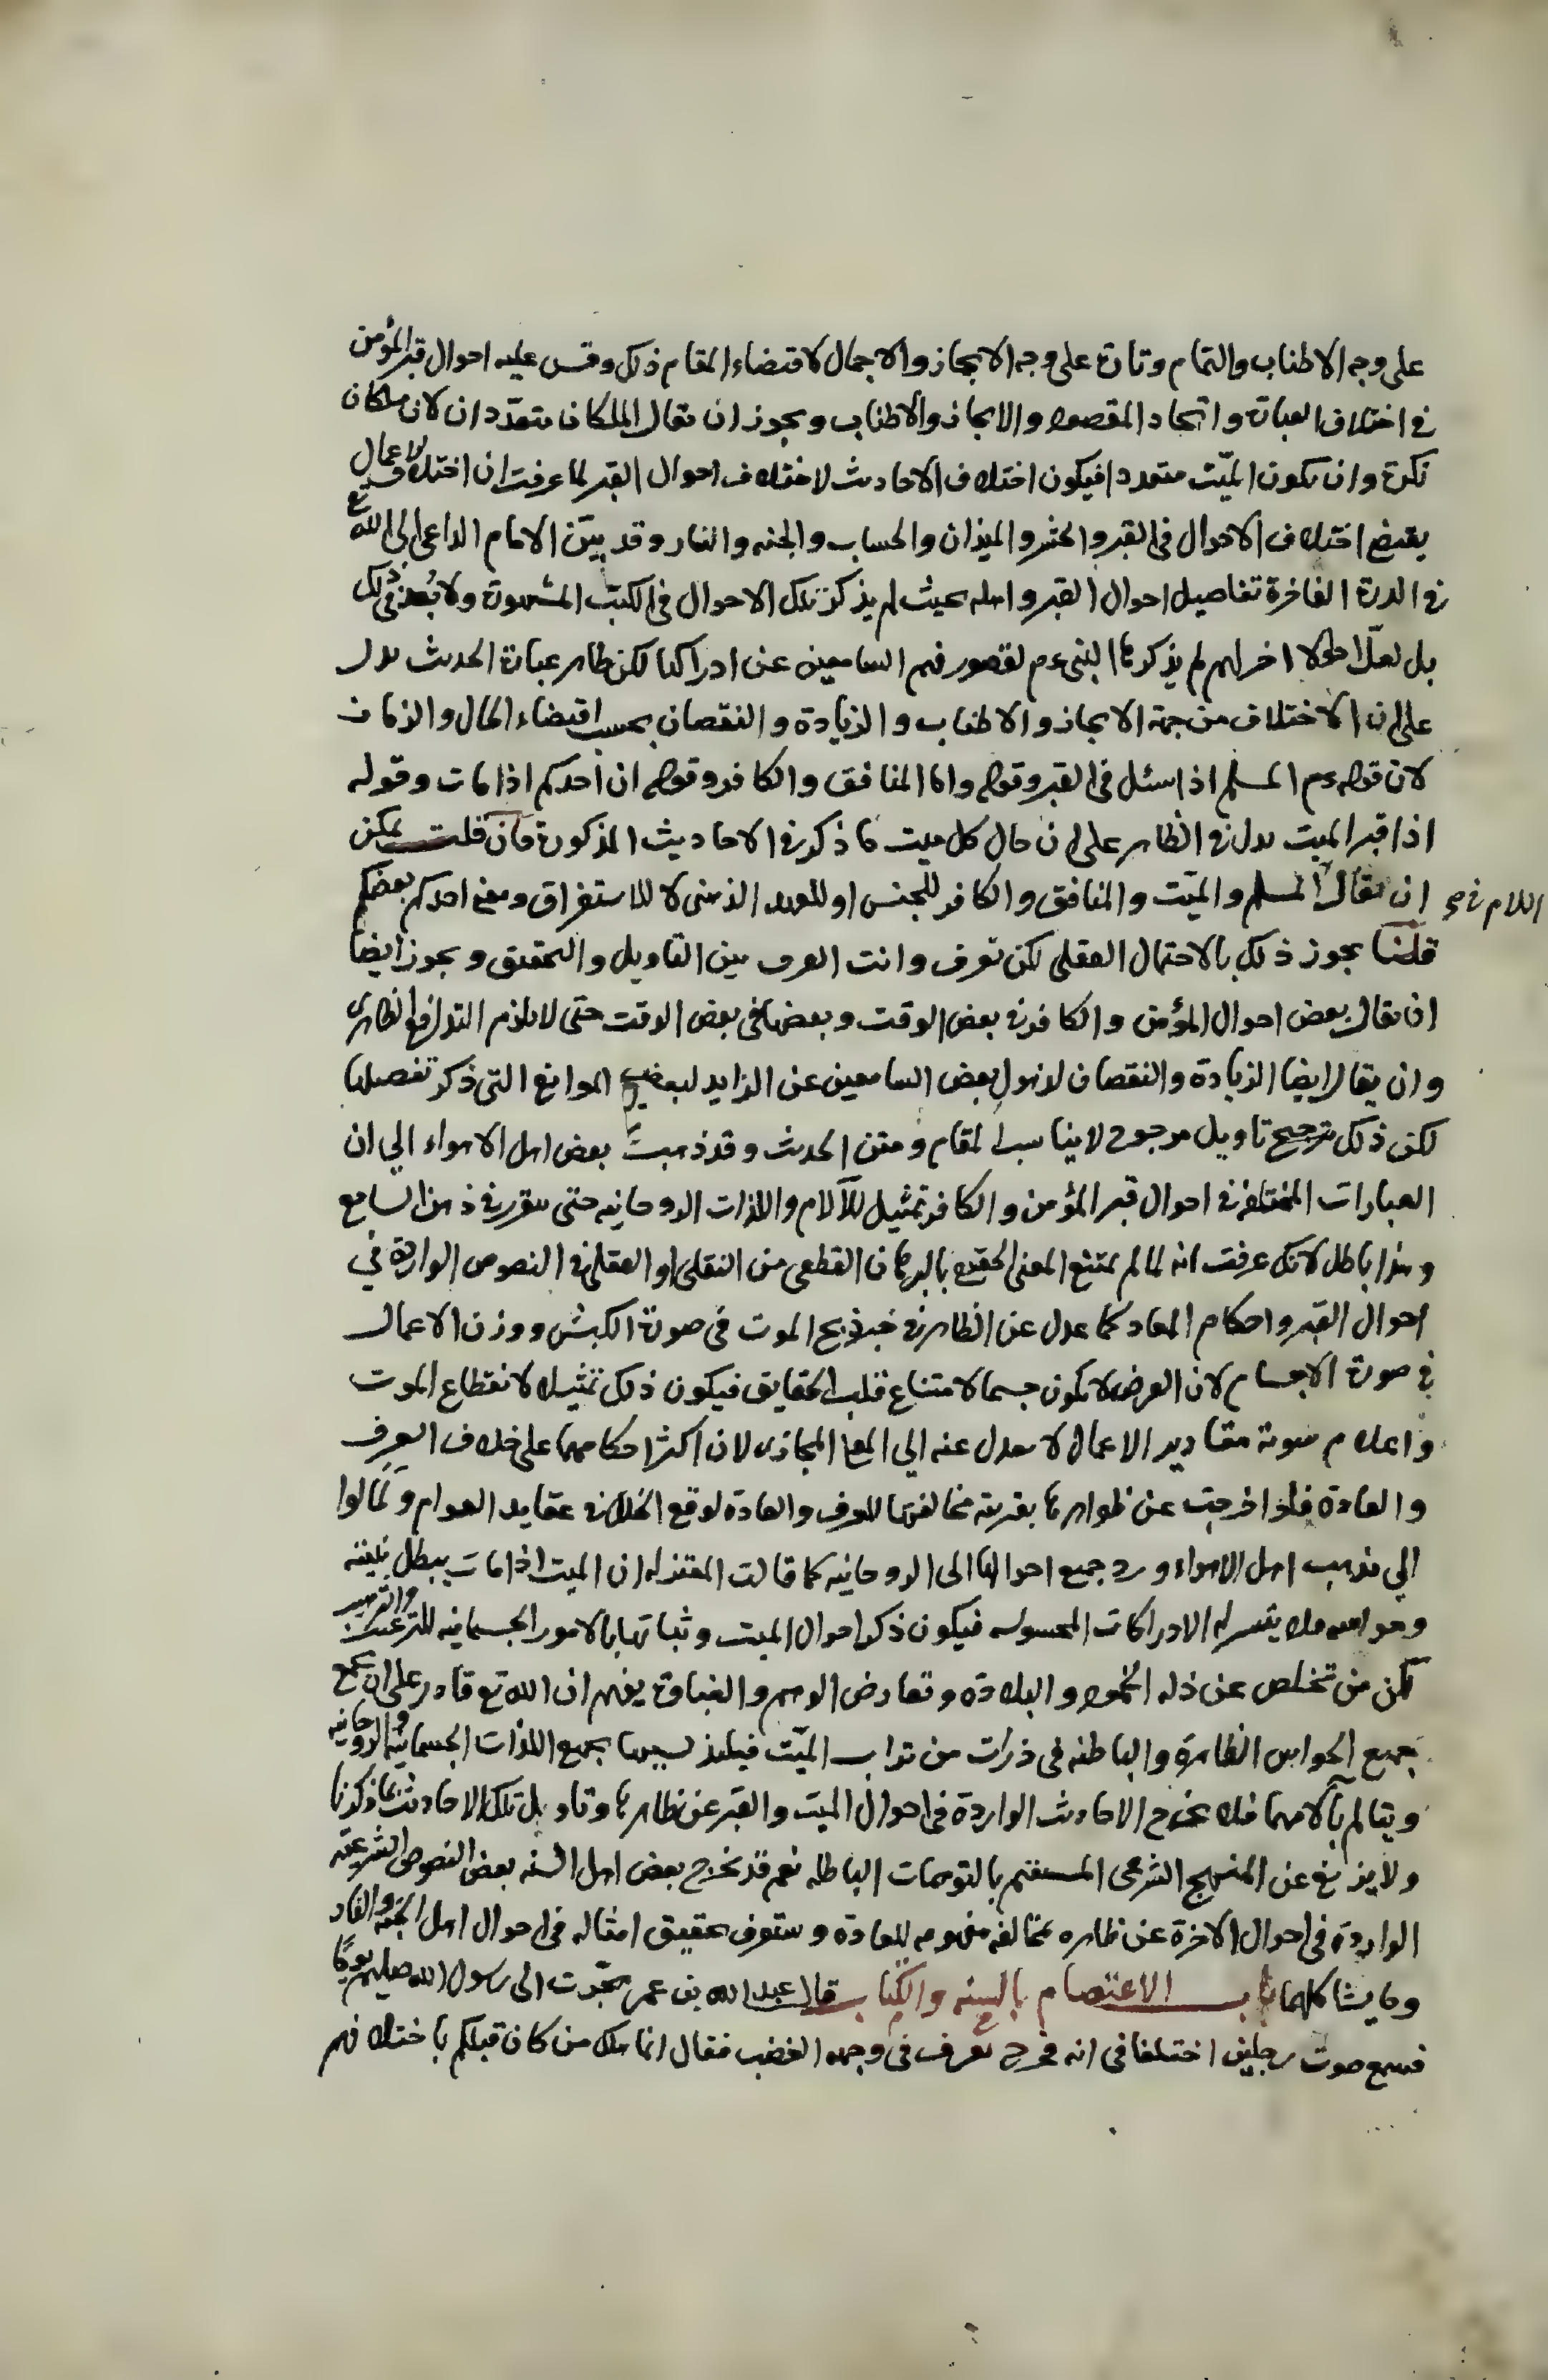 على وجه الاطناب والتمام وتارة على وجه الايجاز والاجمال لاقتضاء المقام ذلك وقس عليه احوال قبر المؤمن
في اختلاف العبارة واتحاد المقصود والايجاز والاطناب ويجوز ان يقال الملكان متعددان لان ملكان
نكرة وان يكون الميّت متعددا فيكون اختلاف الاحاديث لاختلاف احوال القبر لما عرفت ان اختلاف الاعمال
يقتضي اختلاف الاحوال في القبر والحشر والميزان والحساب والجنه والنار وقد بيّن الامام الداعي الى الله تع
في الدرة الفاخرة تفاصيل احوال القبر واهله بحيث لم يذكر تلك الاحوال في الكتب المشهورة ولا بُعد في ذلك
بل لعلّ احوالا اخر لهم لم يذكرها النبي عم لقصور فهم السامعين عن ادراكها لكن ظاهر عبارة الحديث يدل
على ان الاختلاف من جهة الايجاز والاطناب والزيادة والنقصان بحسب اقتضاء الحال والزمان
لان قوله عم المسلم اذا سئل في القبر وقوله واما المنافق والكافر وقوله ان احدكم اذا مات وقوله
اذا قبر الميت يدل في الظاهر على ان حال كل ميت ما ذكر في الاحاديث المذكورة فان قلت يمكن
ان يقال المسلم والميّت والمنافق والكافر للجنس او للعهد الذهني لا للاستغراق ومعنى احدكم بعضكم
اللام في
قلنا يجوز ذلك بالاحتمال العقلي لكن تعرف وانت العرف بين التاويل والتحقيق ويجوز ايضا
ان يقال بعض احوال المؤمن والكافر في بعض الوقت وبعضها في بعض الوقت حتى لا يلزم التدافع الظاهري
وان يقال ايضا الزيادة والنقصان لذهول بعض السامعين عن الزايد لبعض الموانع التي ذكر تفصيلها
لكن ذلك ترجيح تاويل مرجوح لا يناسب المقام ومتن الحديث وقد ذهبت بعض اهل الاهواء الي ان
العبارات المختلفة في احوال قبر المؤمن والكافر تمثيل للآلام واللذات الروحانيه حتى يتقرر في ذهن السامع
وهذا باطل لانك عرفت انه لما لم يمتنع المعنى الحقيقي بالبرهان القطعي من النقلي او العقلي في النصوص الواردة في
احوال القبر واحكام المعاد كما عدل عن الظاهر في خبر ذبح الموت في صورة الكبش ووزن الاعمال
في صورة الاجسام لان العرض لا يكون جسما لامتناع قلب الحقايق فيكون ذلك تمثيلا لانقطاع الموت
واعلام مقادير الاعمال لا يعدل عنه الي المعنى المجازى لان اكثر احكامهما على خلاف العرف
والعادة فلو اخرجت عن ظواهرها بقرينة مخالفتها للعرف والعادة لوقع الخلل في عقايد العوام ولمالوا
الي مذهب اهل الاهواء ورد جميع احوالها الى الروحانيه كما قالت المعتزله ان الميت اذا مات يبطل بنيته
وحواسه فلا يتيسر له الادراكات المحسوسه فيكون ذكر احوال الميت وثباتها بالامور الجسمانيه للترغيب والترهيب
لكن من تخلص عن ذله الخمود والبلادة وتعارض الوهم والغباوة يفهم ان الله تع قادر على ان يجمع
جميع الحواس الظاهرة والباطنه في ذرات من تراب الميّت فيلذ بسببها بجميع اللذات الجسمانيه والروحانيه
ويتالم بآلامهما فلا تخرج الاحاديث الواردة في احوال الميت والقبر عن ظاهرها وتاويل تلك الاحاديث بما ذكرنا
ولا يزيغ عن المنهج الشرعي المستقيم بالتوهمات الباطله نعم قد يخرج بعض اهل السنه بعض النصوص الشرعيّه
الواردة في احوال الاخرة عن ظاهره لمخالفه مفهومه للعادة وستعرف تحقيق امثاله في احوال اهل الجنه والنار
وما يشاكلهما باب الاعتصام بالسنه والكتاب قال عبد الله بن عمر هجّرت الى رسول الله صليعم يومًا
فسمع صوت رجلين اختلفا في اية فخرج يعرف في وجهه الغضب فقال انما هلك من كان قبلكم باختلافهم